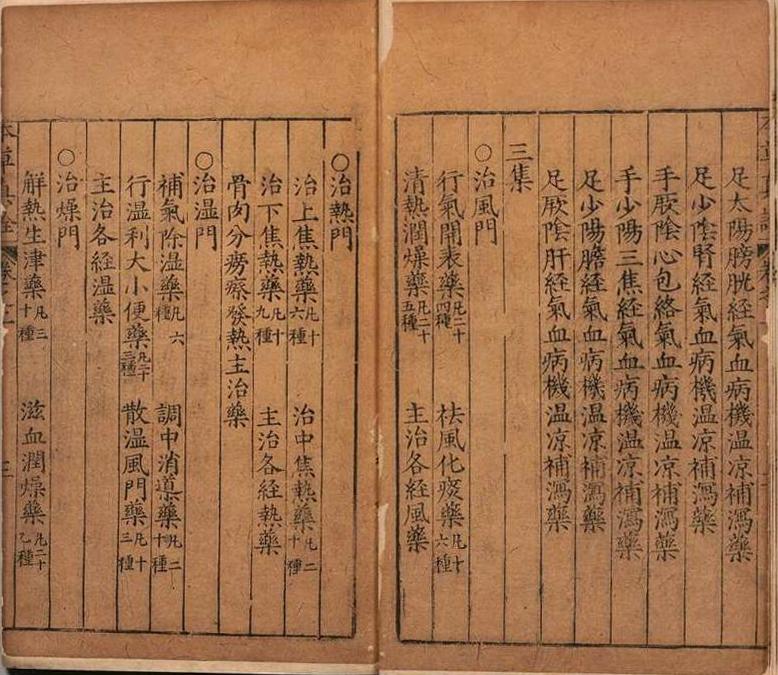 足太陽膀胱経氣血病機温凉補瀉藥
足少陰腎経氣血病機温凉補瀉藥
手厥陰心包絡氣血病機温凉補瀉藥
手少陽三焦経氣血病機温凉補瀉藥
足少陽膽経氣血病機温凉補瀉藥
足厥陰肝経氣血病機温凉補瀉藥
三集
○治風門
行氣開表藥凡二十四種 祛風化痰藥凡十六種
清熱潤燥藥凡二十五種 主治各経風藥
○治熱門
治上焦熱藥凡十六種 治中焦熱藥凡二十種
治下焦熱藥凡十九種 主治各経熱藥
骨肉分癆瘵發熱主治藥
○治湿門
補氣除湿藥凡六種 調中消導藥凡二十種
行湿利大小便藥凡二十三種 散湿風門藥凡十三種
主治各経湿藥
○治燥門
解熱生津藥凡三十種 滋血潤燥藥凡二十乙種